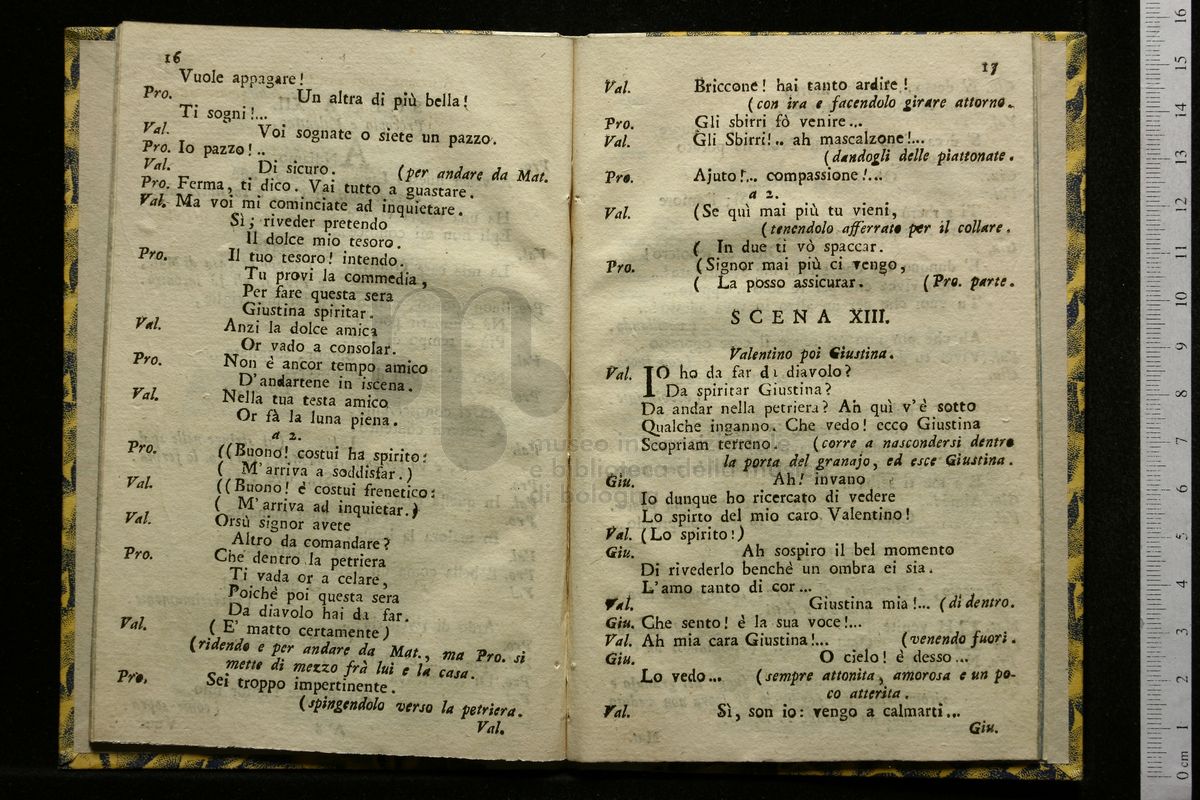 16
Vuole appagare!
Pro. Un altra di più bella!
Ti sogni!...
Val. Voi sognate o siete un pazzo.
Pro. Io pazzo!..
Val. Di sicuro. (per andare da Mat.
Pro. Ferma, ti dico. Vai tutto a guastare.
Val. Ma voi mi cominciate ad inquietare.
Sì; riveder pretendo
Il dolce mio tesoro.
Pro. Il tuo tesoro! intendo.
Tu provi la commedia,
Per fare questa sera
Giustina spiritar.
Val. Anzi la dolce amica
Or vado a consolar.
Pro. Non è ancor tempo amico
D'andartene in iscena.
Val. Nella tua testa amico
Or fà la luna piena.
a 2.
Pro. ((Buono! costui ha spirito:
( M'arriva a soddisfar.)
Val. ((Buono! è costui frenetico:
( M'arriva ad inquietar.)
Val. Orsù signor avete
Altro da comandare?
Pro. Che dentro la petriera
Ti vada or a celare,
Poichè poi questa sera
Da diavolo hai da far.
Val. ( E' matto certamente)
(ridendo e per andare da Mat., ma Pro. si
mette di mezzo frà lui e la casa.
Pro. Sei troppo impertinente.
(spingendolo verso la petriera.
Val.
17
Val. Briccone! hai tanto ardire!
(con ira e facendolo girare attorno.
Pro. Gli sbirri fò venire...
Val. Gli Sbirri!.. ah mascalzone!...
(dandogli delle piattonate.
Pro. Ajuto!... compassione!...
a 2.
Val. (Se quì mai più tu vieni,
(tenendolo afferrato per il collare.
( In due ti vò spaccar.
Pro. (Signor mai più ci vengo,
( La posso assicurar. (Pro. parte.
SCENA XIII.
Valentino poi Giustina.
Val. IO ho da far di diavolo?
Da spiritar Giustina?
Da andar nella petriera? Ah quì v'è sotto
Qualche inganno. Che vedo! ecco Giustina
Scopriam terreno. (corre a nascondersi dentro
la porta del granajo, ed esce Giustina.
Giu. Ah! invano
Io dunque ho ricercato di vedere
Lo spirto del mio caro Valentino!
Val. (Lo spirito!)
Giu. Ah sospiro il bel momento
Di rivederlo benchè un ombra ei sia.
L'amo tanto di cor...
Val. Giustina mia!... (di dentro.
Giu. Che sento! è la sua voce!...
Val. Ah mia cara Giustina!... (venendo fuori.
Giu. O cielo! è desso...
Lo vedo... (sempre attonita, amorosa e un po-
co atterita.
Val. Sì, son io: vengo a calmarti...
Giu.
museo internazionale
e biblioteca della musica
di bologna
0 cm 1 2 3 4 5 6 7 8 9 10 11 12 13 14 15 16